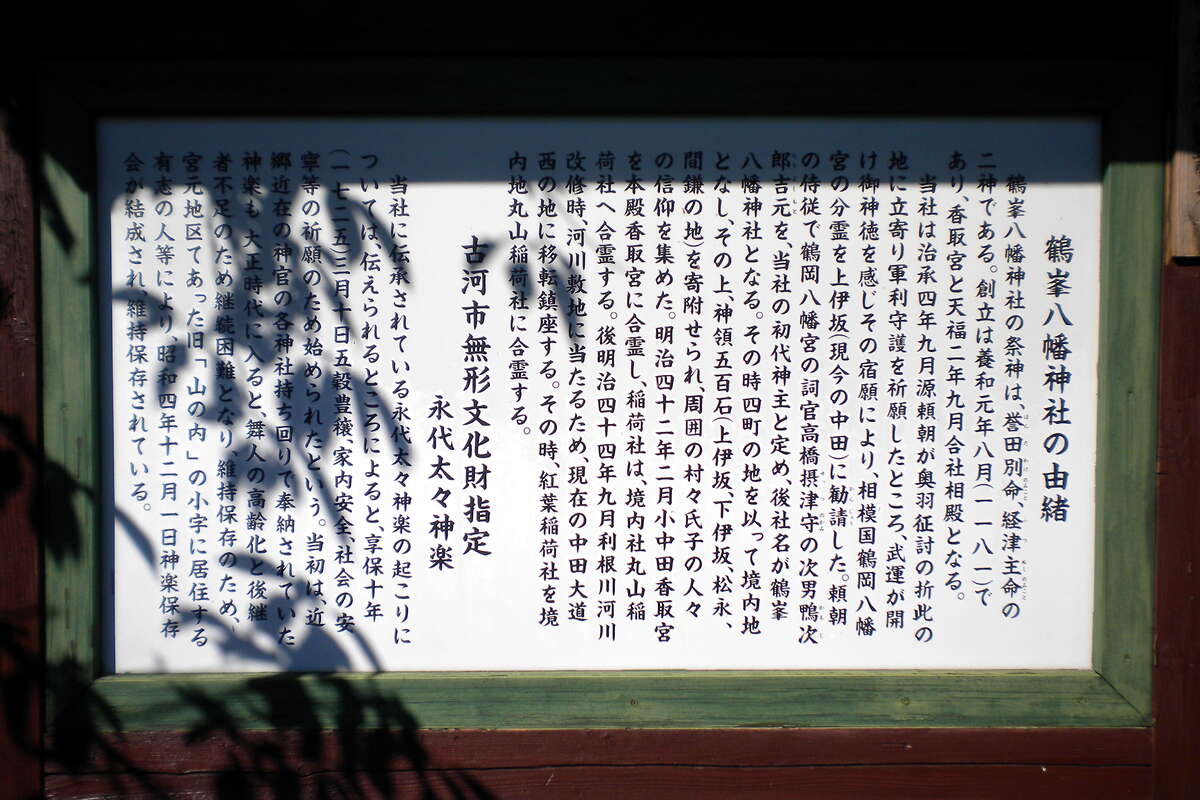 鶴峯八幡神社の由緒
鶴峯八幡神社の祭神は、誉田別命、経津主命の
二神である。創立は養和元年八月(一一八一)で
あり、香取宮と天福二年九月合社相殿となる。
当社は治承四年九月源頼朝が奥羽征討の折此の
地に立寄り軍利守護を祈願したところ、武運が開
け御神徳を感じその宿願により、相模国鶴岡八幡
宮の分霊を上伊坂(現今の中田)に勧請した。頼朝
の侍従で鶴岡八幡宮の詞官高橋摂津守の次男鴨次
郎吉元を、当社の初代神主と定め、後社名が鶴峯
八幡神社となる。その時四町の地を以って境内地
となし、その上、神領五百石(上伊坂、下伊坂、松永、
間鎌の地)を寄附せられ、周囲の村々氏子の人々
の信仰を集めた。明治四十二年二月小中田香取宮
を本殿香取宮に合霊し、稲荷社は、境内社丸山稲
荷社へ合霊する。後明治四十四年九月利根川河川
改修時、河川敷地に当たるため、現在の中田大道
西の地に移転鎮座する。その時、紅葉稲荷社を境
内地丸山稲荷社に合霊する。
古河市無形文化財指定
永代太々神楽
当社に伝承されている永代太々神楽の起こりに
ついては、伝えられるところによると、享保十年
(一七二五)三月十日五穀豊穣、家内安全、社会の安
寧等の祈願のため始められたという。当初は、近
郷近在の神官の各神社持ち回りて奉納されていた
神楽も、大正時代に入ると、舞人の高齢化と後継
者不足のため継続困難となり、維持保存のため、
宮元地区てあった旧「山の内」の小字に居住する
有志の人等により、昭和四年十二月一日神楽保存
会が結成され維持保存されている。